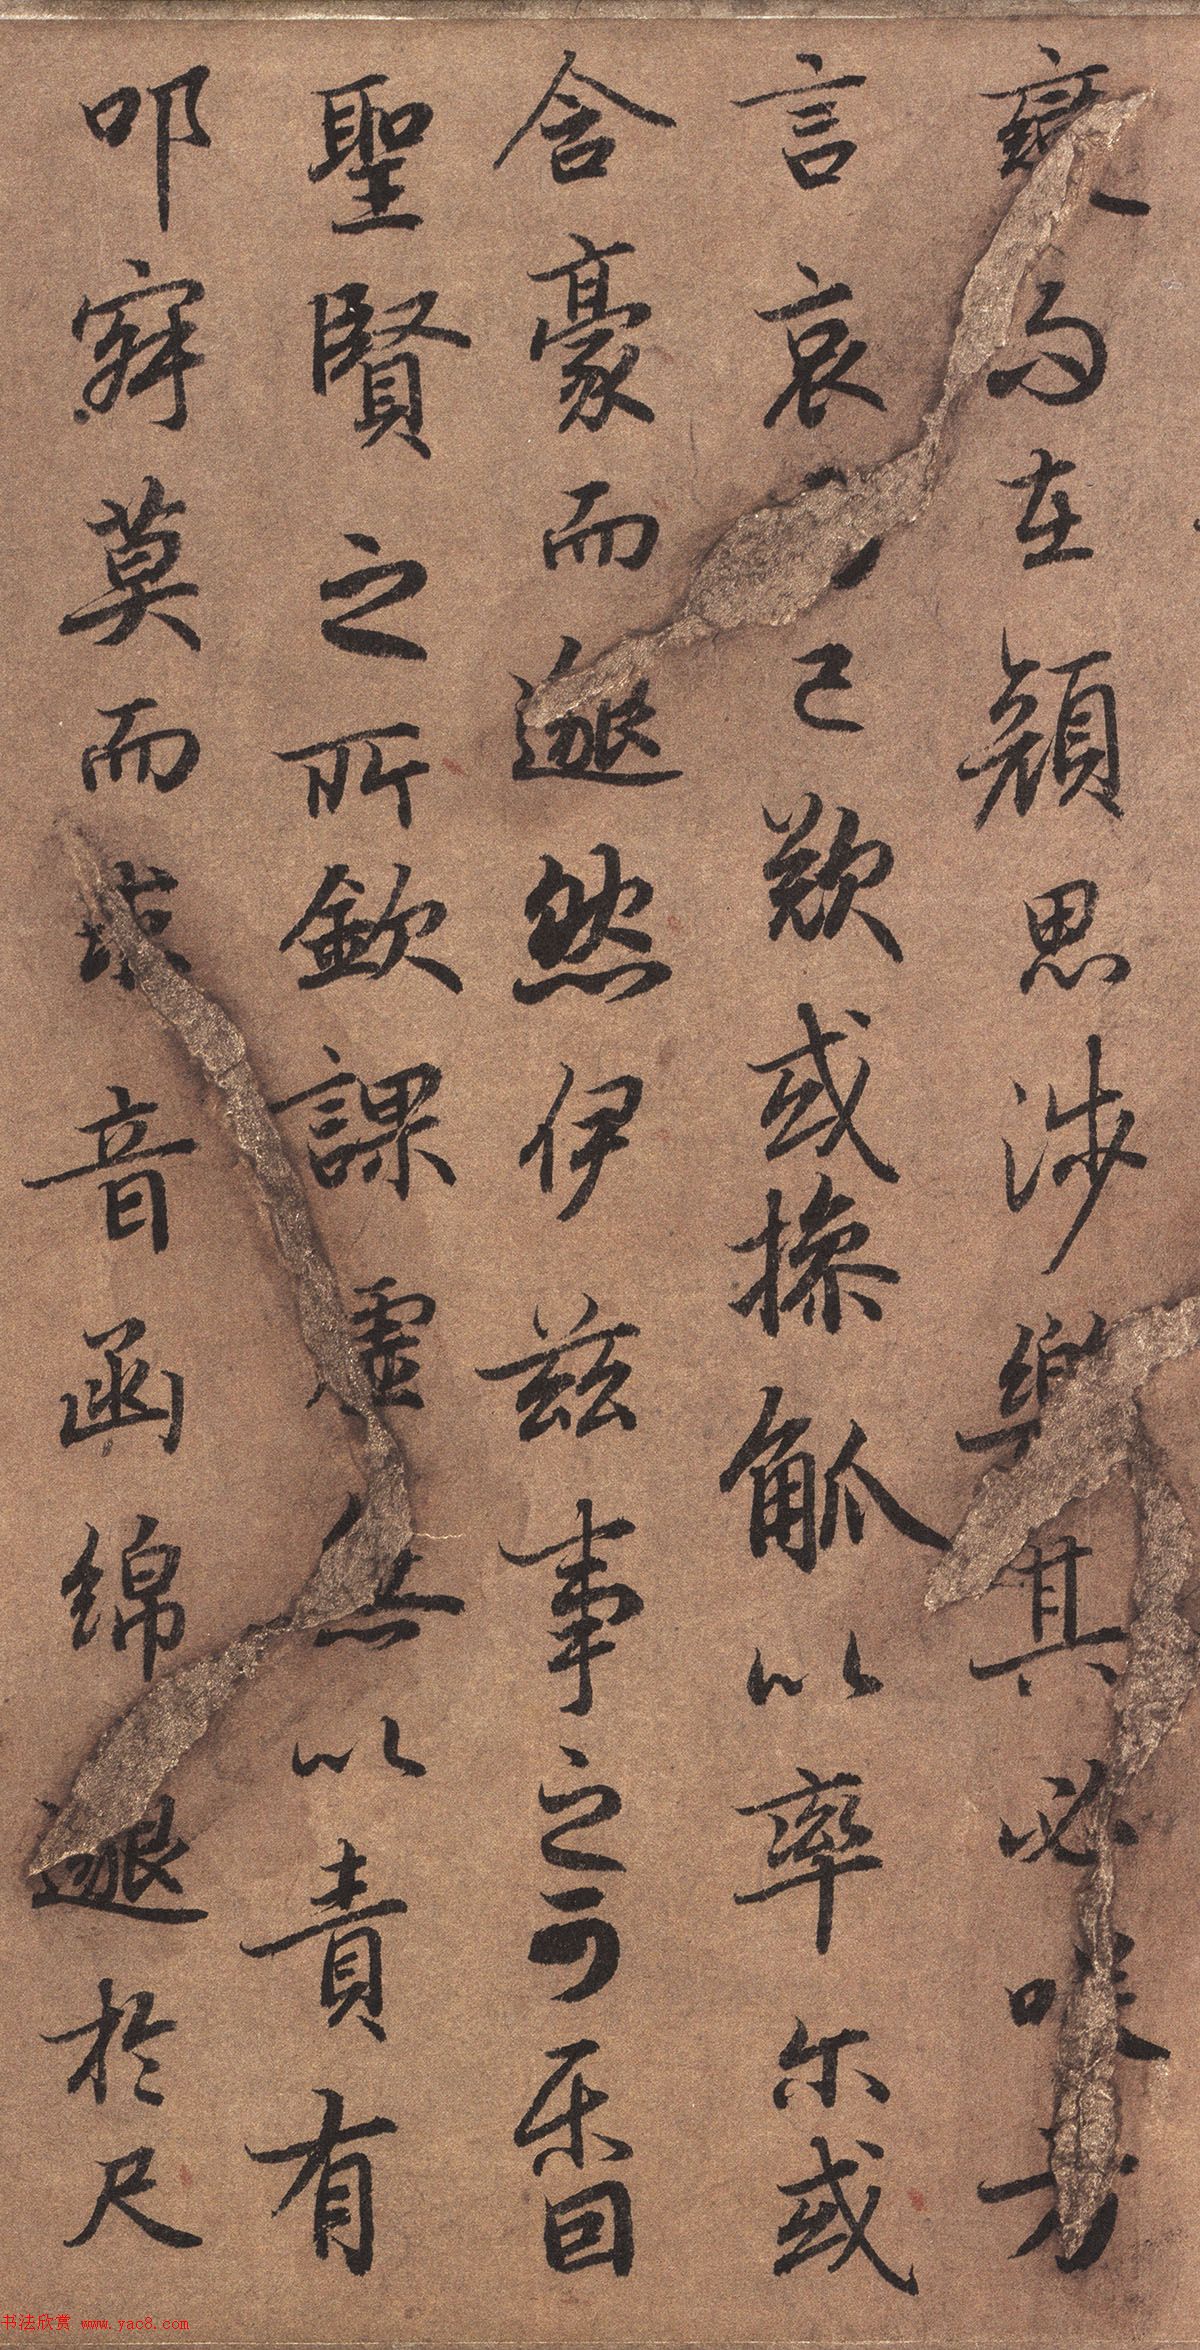 變而在顏思涉樂其必咲方
言哀已歎或操觚以率尓或
含豪而邈然伊茲事之可樂固
聖賢之所欽課虛無以責有
叩寂莫而求音函綿邈於尺
书法欣赏 www.yac8.com